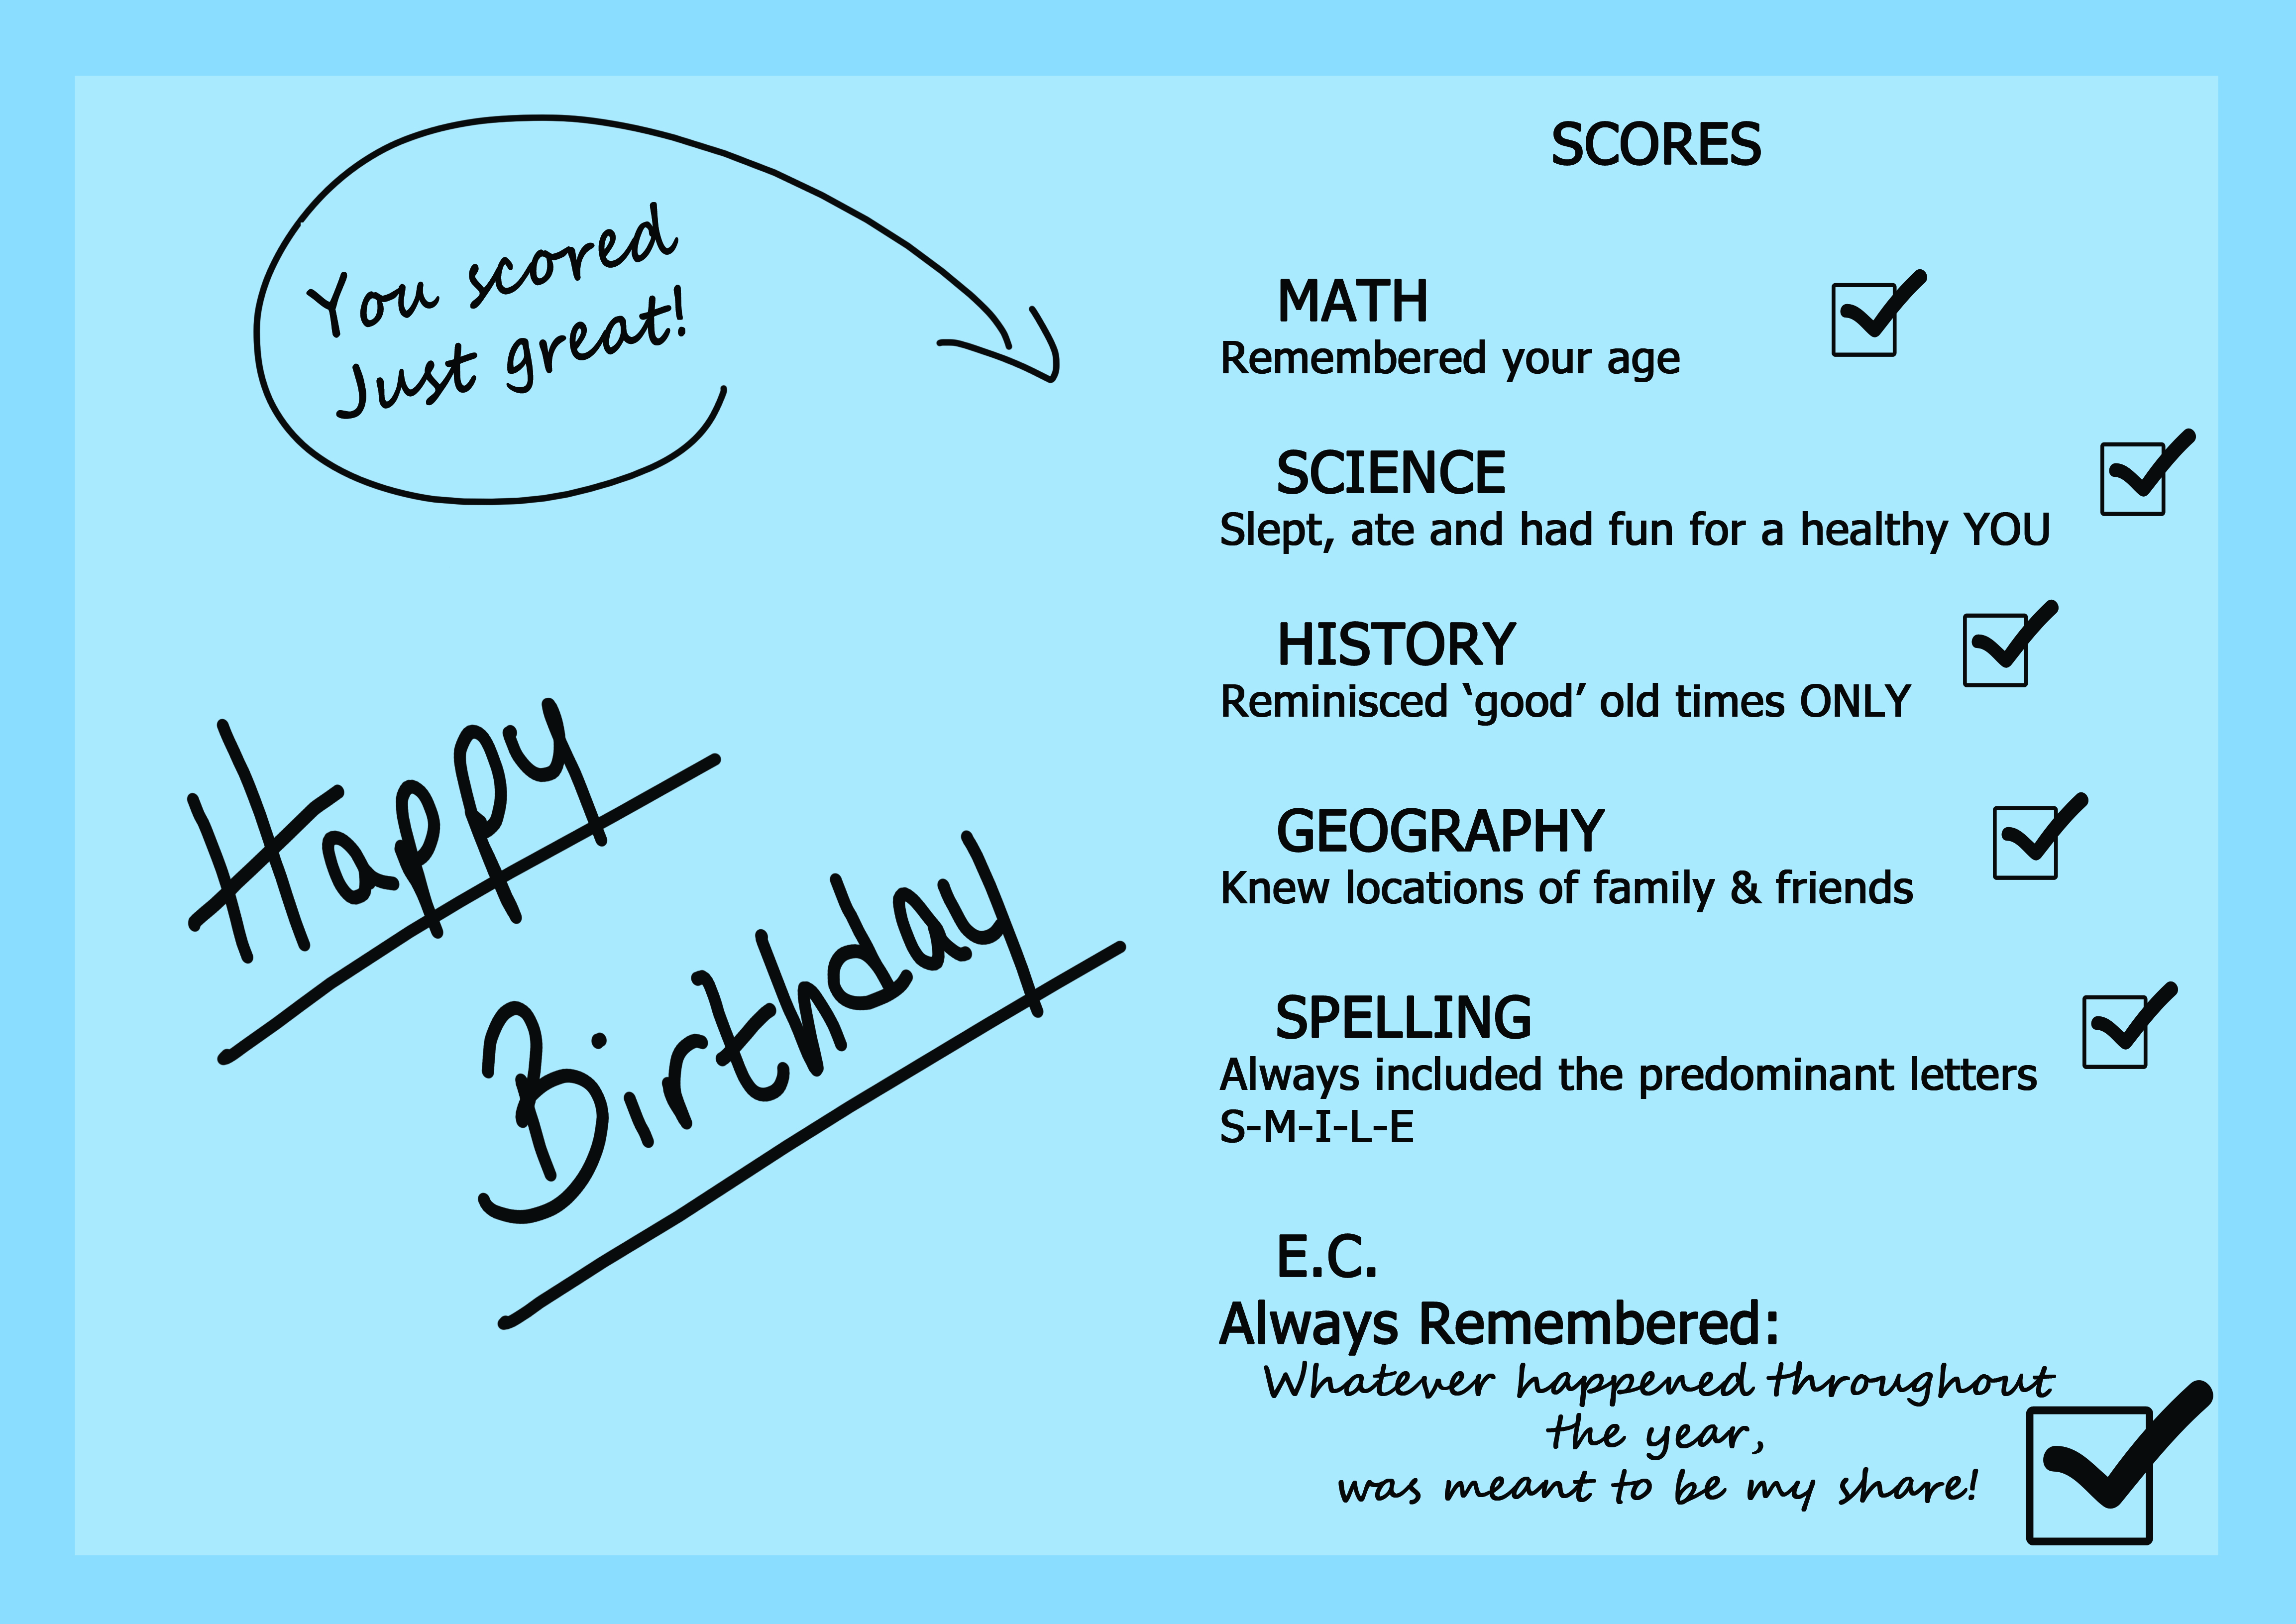 You scored
Just great!
Happy
Birthday
SCORES
MATH
Remembered your age
SCIENCE
Slept, ate and had fun for a healthy YOU
HISTORY
Reminisced ‘good’ old times ONLY
GEOGRAPHY
Knew locations of family & friends
SPELLING
Always included the predominant letters
S-M-I-L-E
E.C.
Always Remembered:
Whatever happened throughout
the year,
was meant to be my share!